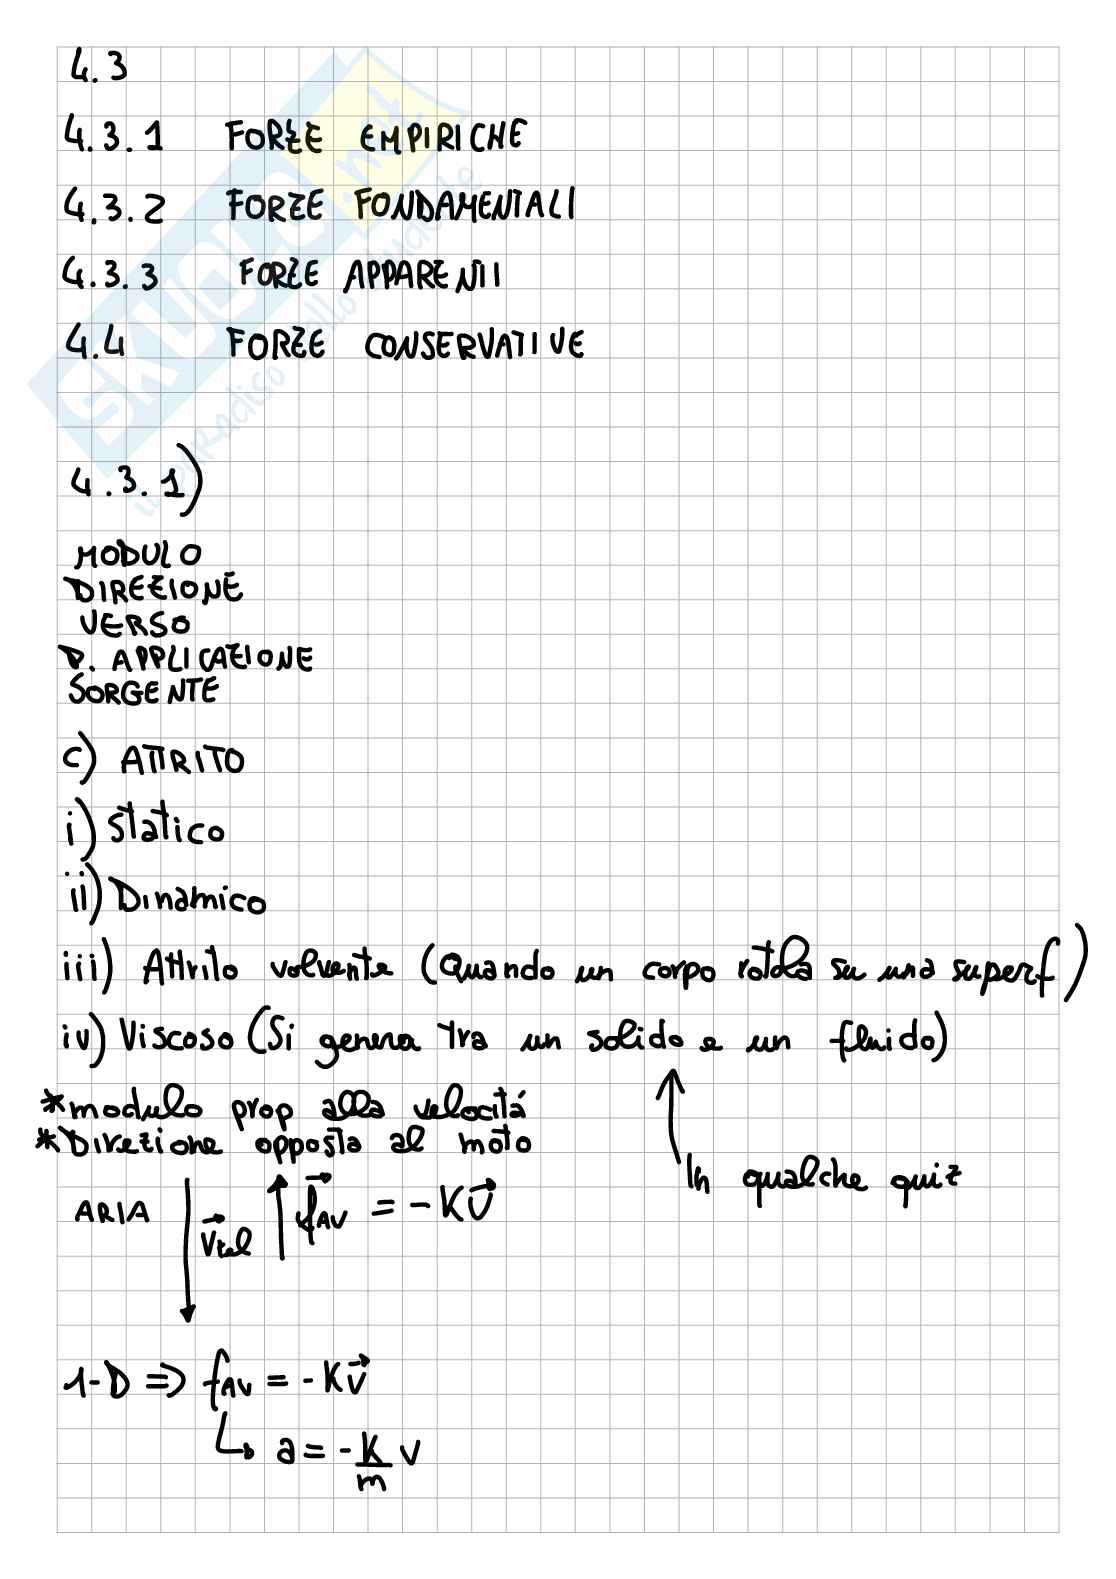 4.3
4.3.1 FORZE EMPIRICHE
4.3.2 FORZE FONDAMENTALI
4.3.3 FORZE APPARENTI
4.4 FORZE CONSERVATIVE
SKUOLA.net
il paradiso dello studente
4.3.1)
MODULO
DIREZIONE
VERSO
P. APPLICAZIONE
SORGENTE
c) ATTRITO
i) Statico
ii) Dinamico
iii) Attrito volvente (Quando un corpo rotola su una superf)
iv) Viscoso (Si genera tra un solido e un fluido)
*modulo prop alla velocitá
*Direzione opposta al moto
In qualche quiz
ARIA v⃗tel f⃗AV = -Kv⃗
1-D ⇒ fAV = -Kv⃗
↳ a = -K/m v